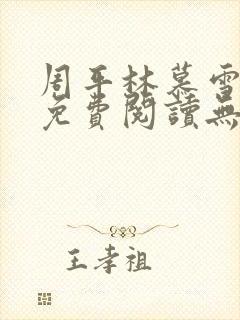 周平林慕雪
免費閱讀無
王孝祖